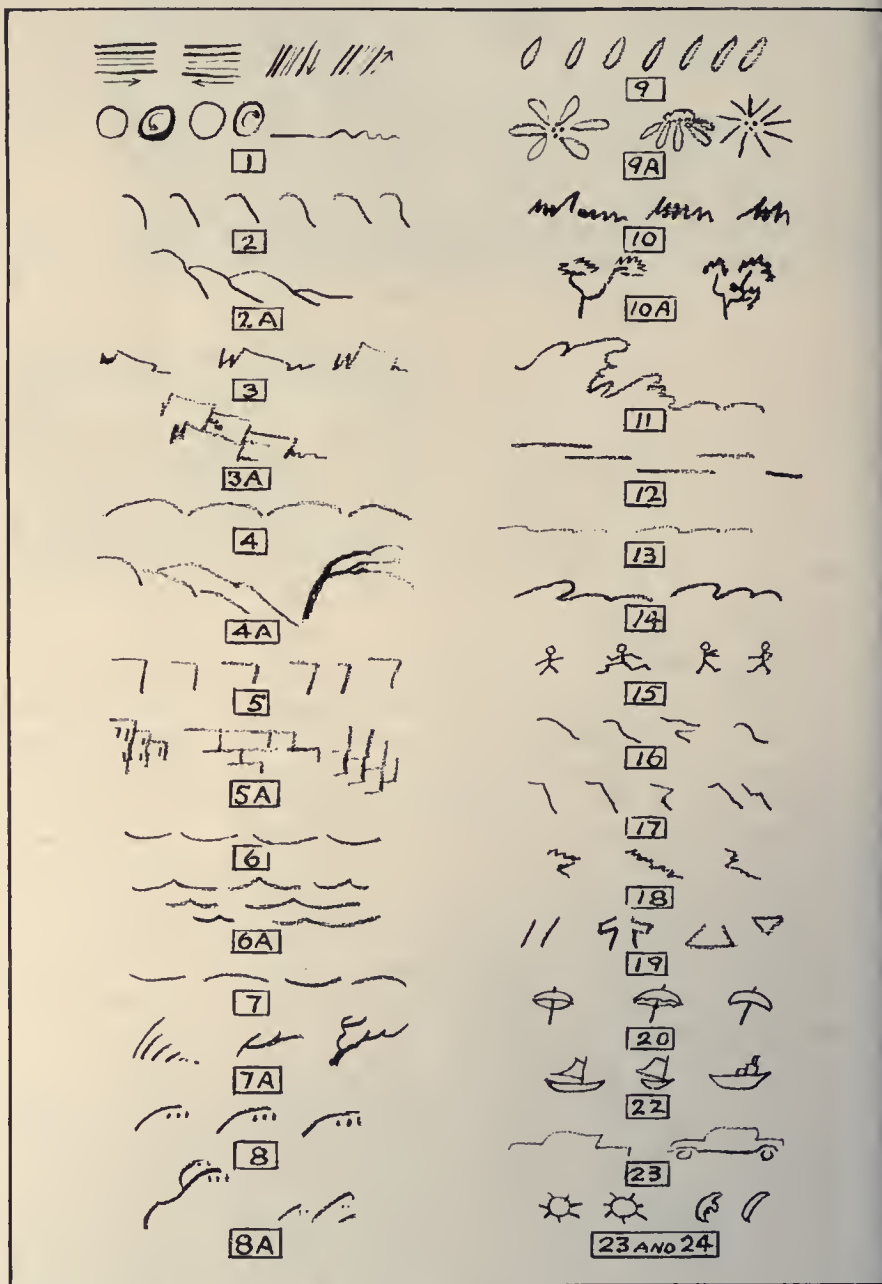 1
2
2A
3
3A
4
4A
5
5A
6
6A
7
7A
8
8A
9
9A
10
10A
11
12
13
14
15
16
17
18
19
20
22
23
23 AND 24